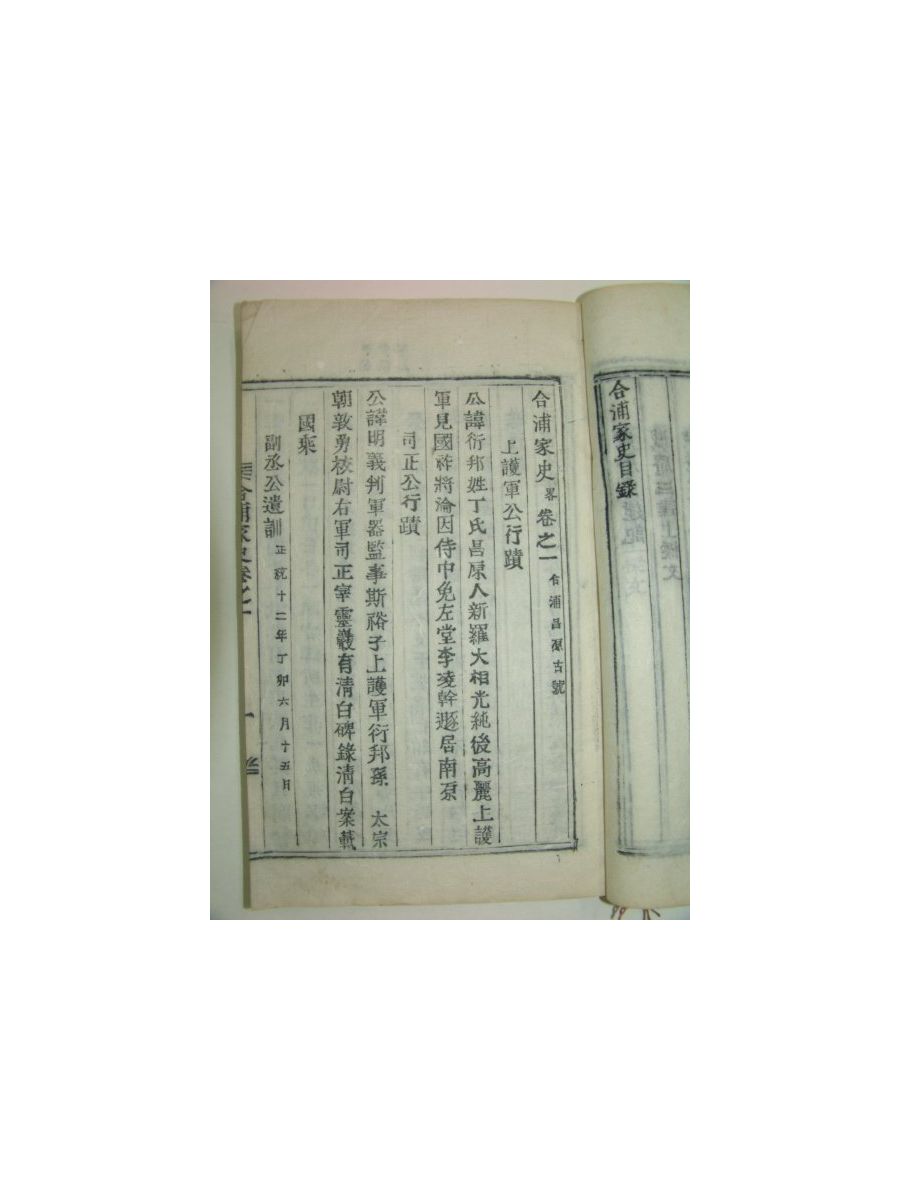 合浦家史目錄
合浦家史畧卷之一 合浦昌源古號
上護軍公行蹟
公諱衍邦姓丁氏昌原人新羅大相光純後高麗上護
軍見國祚將淪因侍中免左堂李凌幹遯居南原
司正公行蹟
公諱明義判軍器監事斯裕子上護軍衍邦孫 太宗
朝敦勇校尉右軍司正宰靈巖有清白碑錄清白案載
國乘
副丞公遺訓 正統十二年丁卯六月十五日
合浦家史卷之一
一